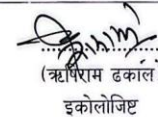 (ऋषिराम ढकाल
इकोलोजिष्ट